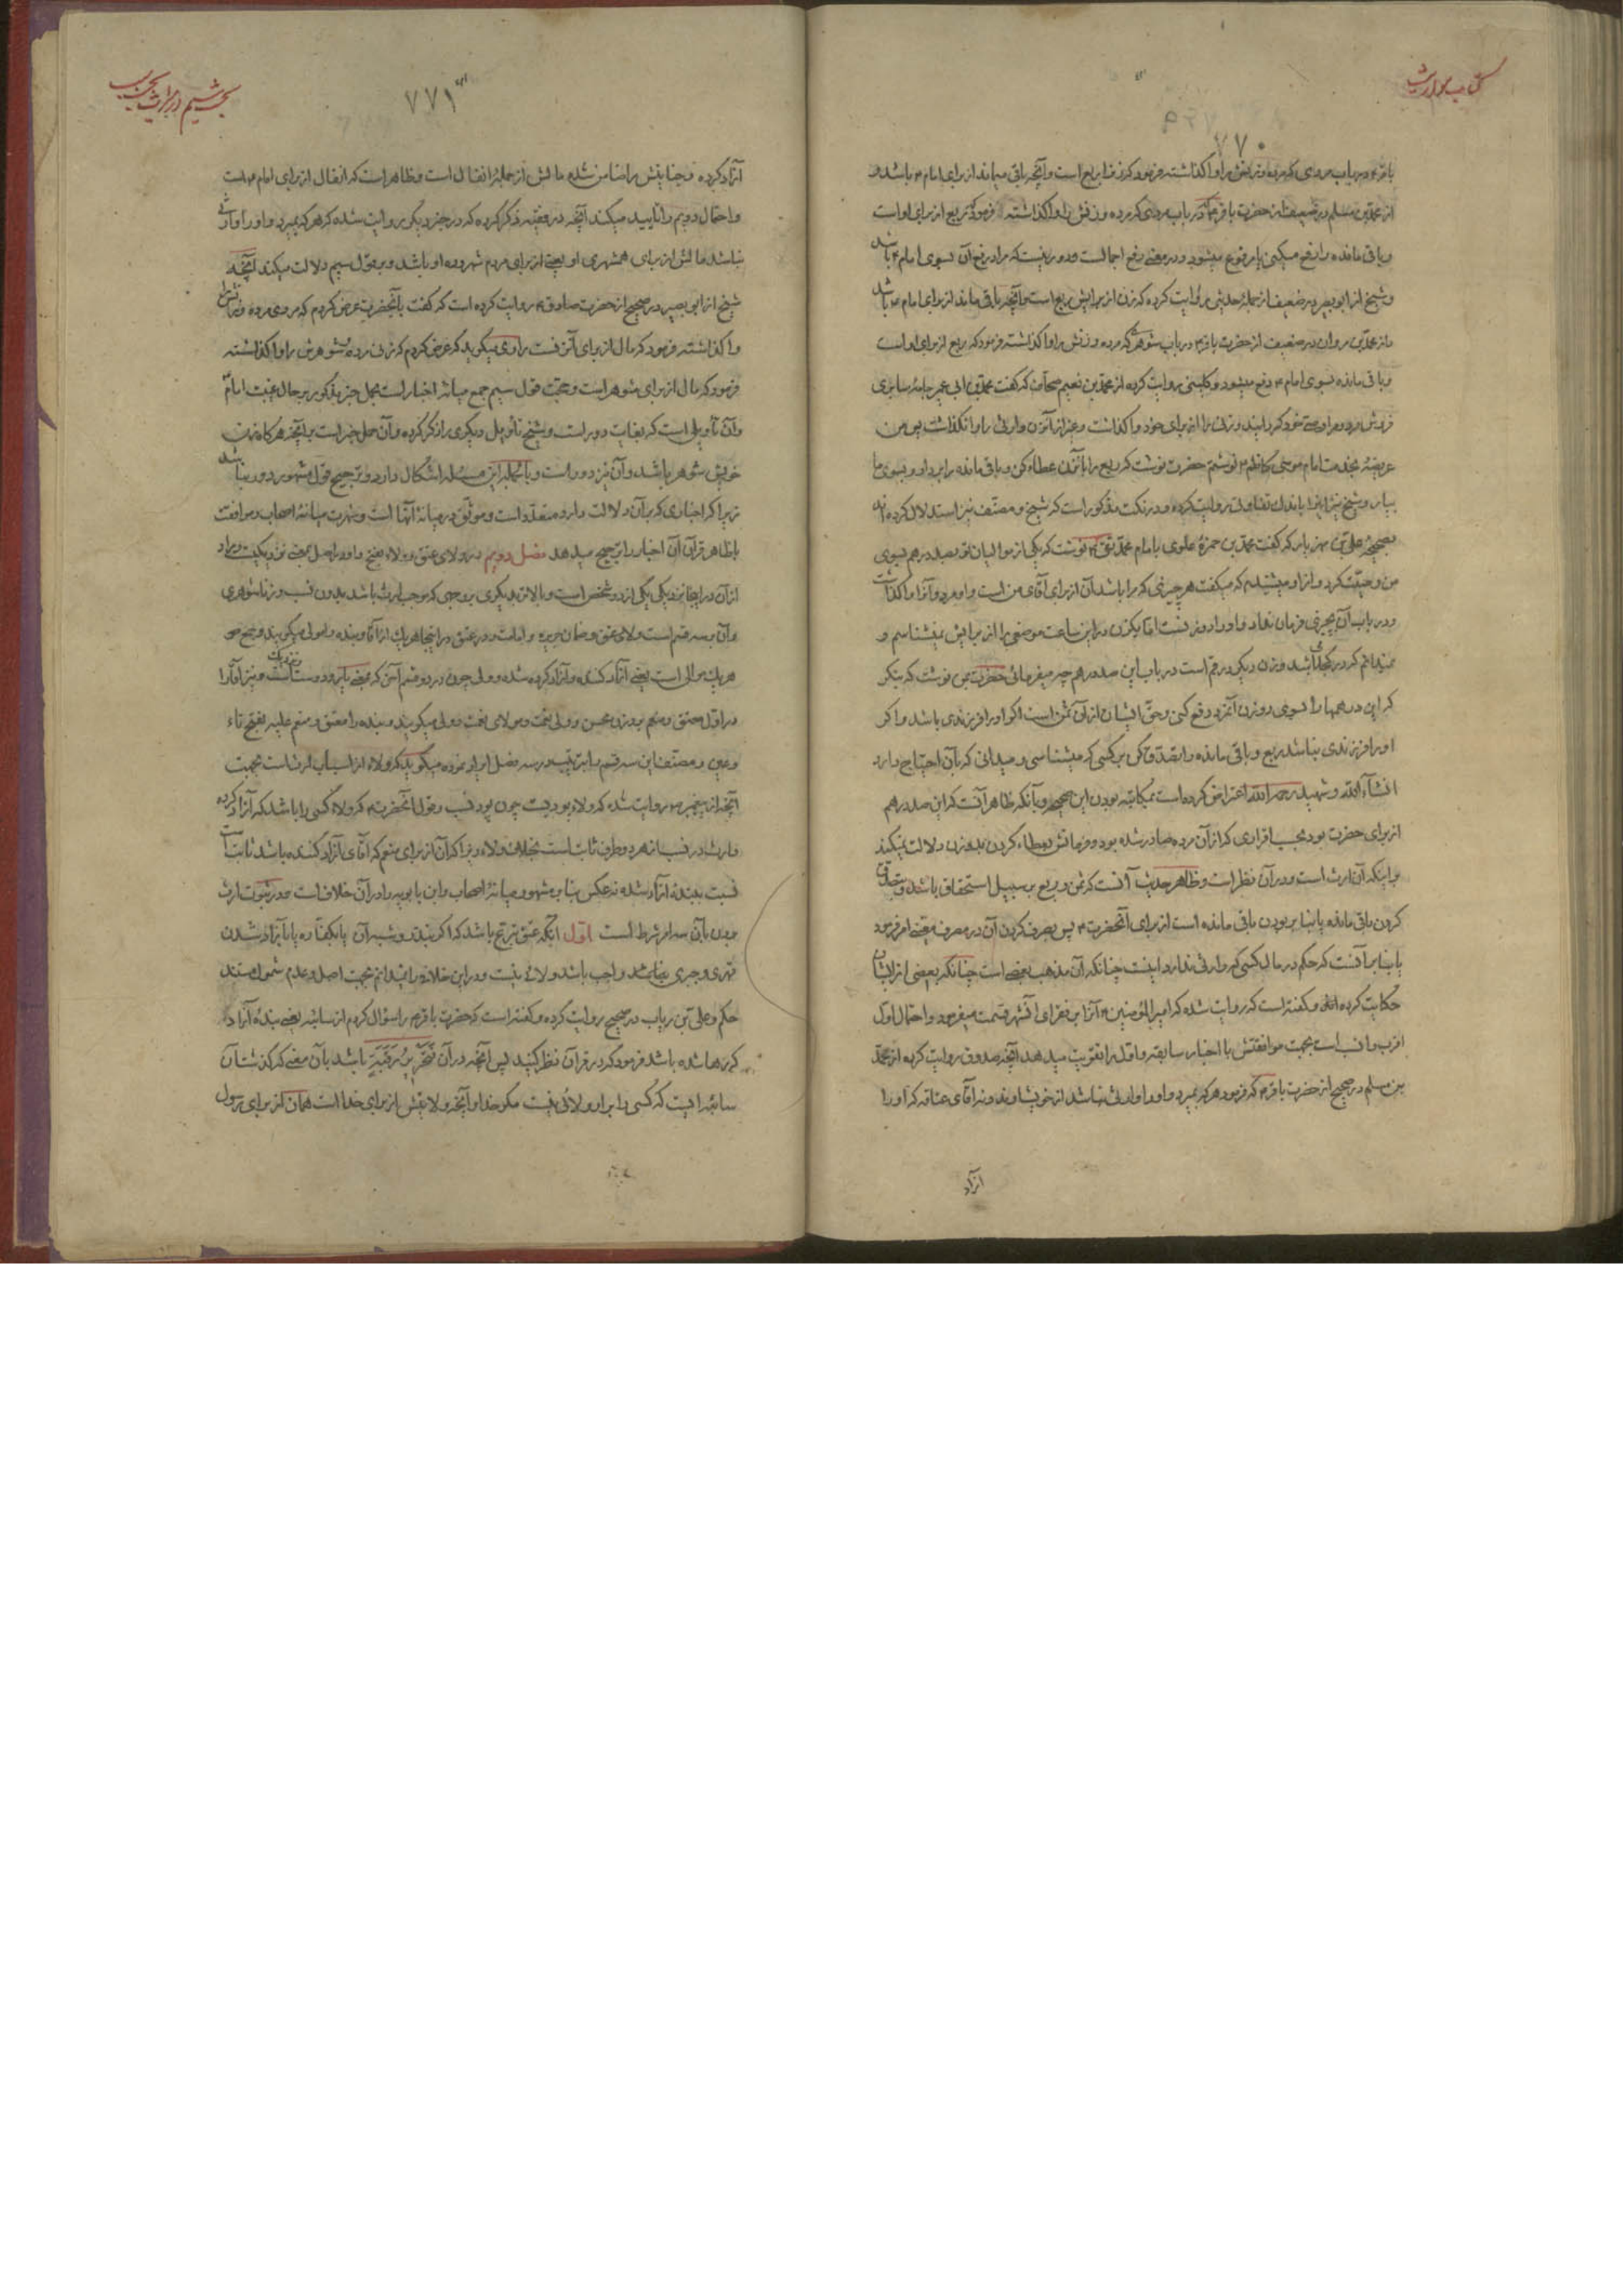 کتاب مواریث
۷۷۰
باقر ۴ در باب مردی که مرده و زنش را واگذاشته فرمود که زن را ربع است و آنچه باقی میماند از برای امام ۴ باشد و
از محمد بن مسلم در ضعیف از حضرت باقر ۴ در باب مردی که مرده و زنش را واگذاشته فرمود که ربع از برای او است
و باقی مانده را رفع میکنی یا مرفوع میشود و در معنی رفع اجمال است و دور نیست که مراد رفع آن بسوی امام ۴ باشد
و شیخ از ابو بصیر در ضعیف از جملهٔ حدیثی روایت کرده که زن از برایش ربع است و آنچه باقی ماند از برای امام ۴ باشد
و از محمد بن مروان در ضعیف از حضرت باقر ۴ در باب شوهری که مرده و زنش را واگذاشته فرمود که ربع از برای او است
و باقی مانده بسوی امام ۴ دفع میشود و کلینی روایت کرده از محمد بن نعیم صحاف که گفت محمد بن ابی عمیر جامه سابری
فروش مرد و مرا وصی خود گردانید و زنی را از برای خود واگذاشت و غیر از آن زن وارثی را وانگذاشت پس من
عریضهٔ بخدمت امام موسی کاظم ۴ نوشتم حضرت نوشت که ربع را بآن زن عطاء کن و باقی مانده را بردار و بسوی ما
بیار و شیخ نیز اینرا باندک تفاوتی روایت کرده و در نکت مذکور است که شیخ و مصنف نیز استدلال کرده اند
بصحیحهٔ علی بن مهزیار که گفت محمد بن حمزهٔ علوی بامام محمد تقی ۴ نوشت که یکی از موالیان تو بصد درهم بسوی
من وصیت کرد و از او میشنیدم که میگفت هر چیزی که مرا باشد آن از برای آقای من است و او مرد و آنرا واگذاشت
و در باب آن بچیزی فرمان نداد و او را دو زنست اما یکزن در این ساعت موضعی را از برایش نمیشناسم و
نمیدانم که در کجا باشد و زن دیگر در قم است در باب این صد درهم چه میفرمائی حضرت بمن نوشت که بنگر
که این درهمها را بسوی دو زن آنمرد دفع کنی و حق ایشان از آن ثمن است اگر او را فرزندی باشد و اگر
او را فرزندی نباشد ربع و باقی مانده را تصدق کن بر کسی که میشناسی و میدانی که بآن احتیاج دارد
انشاء الله و شهید رحمه الله اعتراض کرده است بمکاتبه بودن این صحیحه و بآنکه ظاهر آنست که این صد درهم
از برای حضرت بود بحسب اقراری که از آن مرده صادر شده بود و فرمانش بعطاء کردن بدو زن دلالت نمیکند
بر اینکه آن ارث است و در آن نظر است و ظاهر حدیث آنست که ثمن و ربع بر سبیل استحقاق باشد و تصدق
کردن باقی مانده یا بنا بر بودن باقی مانده است از برای آنحضرت ۴ پس بصرف کردن آن در مصرف معینی امر فرمود
یا بنا بر آنست که حکم در مال کسی که وارثی ندارد اینست چنانکه آن مذهب بعضی است چنانکه بعضی از ایشان
حکایت کرده اند و گفته است که روایت شده که امیر المؤمنین ۴ آنرا بر فقرای آنشهر قسمت میفرمود و احتمال اول
اقرب و انسب است بجهت موافقتش با اخبار سابقه و اول را تقویت میدهد آنچه صدوق روایت کرده از محمد
بن مسلم در صحیح از حضرت باقر ۴ که فرمود هر که بمیرد و او را وارثی نباشد از خویشاوند و نه آقای عتاقه که او را
آزاد
بحث ششم در میراث بحسب سبب
۷۷۱
آزاد کرده و جنایتش را ضامن شده مالش از جملهٔ انفال است و ظاهر است که انفال از برای امام ۴ است
و احتمال دویم را تأیید میکند آنچه در فقیه ذکر کرده که در خبر دیگر روایت شده که هر که بمیرد و او را وارثی
نباشد مالش از برای همشهری او یعنی از برای مردم شهر و ده او باشد و بر قول سیم دلالت میکند آنچه
شیخ از ابی بصیر در صحیح از حضرت صادق ۴ روایت کرده است که گفت بآنحضرت عرض کردم که مردی مرده و زنش را
واگذاشته فرمود که مال از برای آنزنست راوی میگوید که عرض کردم که زنی مرده و شوهرش را واگذاشته
فرمود که مال از برای شوهر است و حجت قول سیم جمع میانهٔ اخبار است بحمل خبر مذکور بر حال غیبت امام
و آن تأویلی است که بغایت دور است و شیخ تأویل دیگری را ذکر کرده و آن حمل خبر است بر آنچه هرگاه زن
خویش شوهر باشد و آن نیز دور است و بالجمله این مسئله اشکال دارد و ترجیح قول مشهور دور نباشد
زیرا که اخباری که بر آن دلالت دارد متعدد است و موثق در میانهٔ آنها است و شهرت میانهٔ اصحاب و موافقت
با ظاهر قرآن آن اخبار را ترجیح میدهد فصل دویم در ولای عتق و ولاء بفتح واو در اصل بمعنی نزدیکیست و مراد
از آن در اینجا نزدیکی یکی از دو شخص است و بالاتر بدیگری بروجهی که موجب ارث باشد بدون نسب و زناشوهری
و آن بر سه قسم است ولای عتق و ضمان جریره و امامت و در عتق در اینجا هر یک از آقا و بنده را مولی میگویند و جمع
هر یک موالی است یعنی آزاد کننده و آزاد کرده شده و ولی چون در دو قسم آخر که بمعنی یاور و دوست است و نیز آقا را
در اول معتق و منعم بوزن محسن و ولی نعمت و مولای نعمت و ولی میگویند و بنده را معتق و منعم علیه بفتح تاء
و عین و مصنف این سه قسم را بترتیب در سه فصل ایراد نموده میگوید که ولاء از اسباب ارث است بجهت
آنچه از پیغمبر ص روایت شده که ولاء پودیست چون پود نسب و قول آنحضرت ص که ولاء کسی را باشد که آزاد کرده
و ارث در نسب از هر دو طرف ثابت است بخلاف ولاء زیرا که آن از برای منعم که آقای آزاد کننده باشد ثابت است
نسبت ببندهٔ آزاد شده نه عکس بنا بر مشهور میانهٔ اصحاب و ابن بابویه را در آن خلاف است و در ثبوت ارث
بردن بآن سه امر شرط است اول اینکه عتق تبرع باشد که اگر بنذر و شبه آن یا بکفاره یا بآزاد شدن
قهری و جبری یعنی واجب باشد ولائی نیست و در این خلافی را نمیدانم بجهت اصل و عدم شمول مستند
حکم و علی بن رباب در صحیح روایت کرده و گفته است که حضرت باقر ۴ را سؤال کردم از سائبه یعنی بندهٔ آزاد
که رها شده باشد فرمود که در قرآن نظر کنید پس آنچه در آن فَتَحْرِیرُ رَقَبَةٍ باشد بآن معنی که گذشت آن
سائبه ایست که کسی را بر او ولائی نیست مگر خدا و آنچه ولایتش از برای خدا است همان از برای رسول